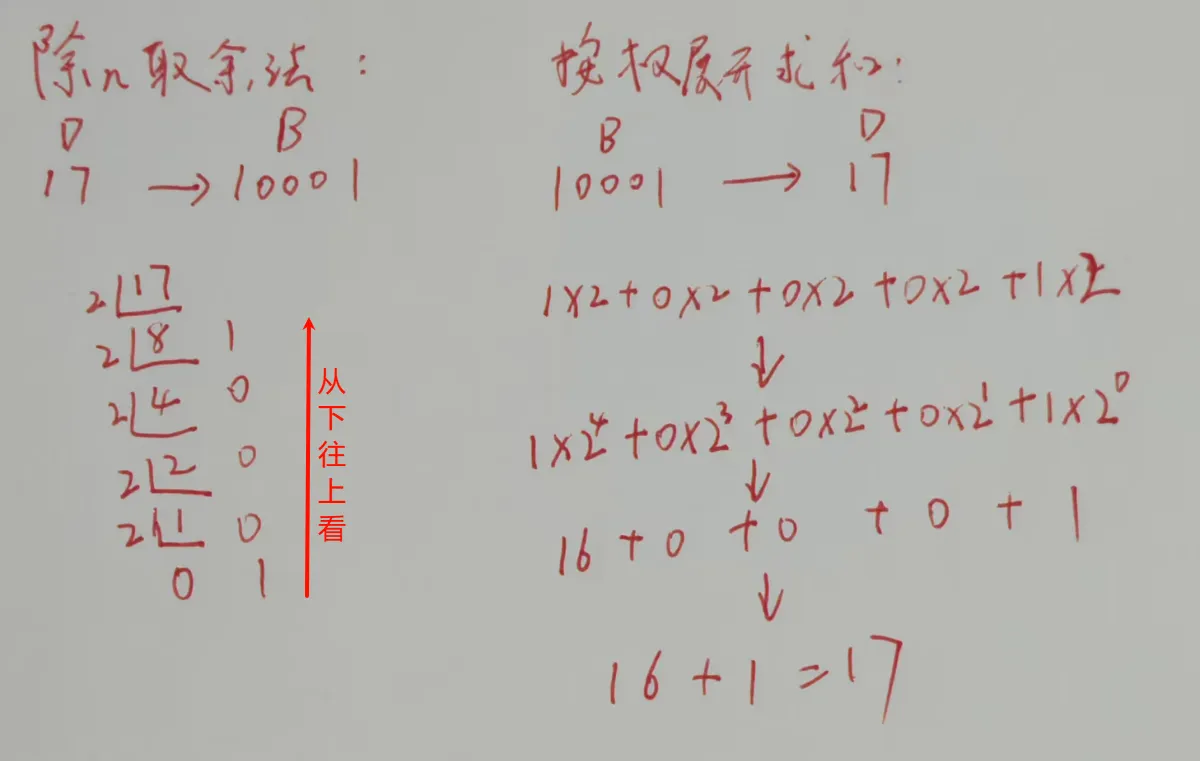 除n取余法：
D B
17 → 10001
2 17
2 8 1
2 4 0
2 2 0
2 1 0
0 1
从下往上看
按权展开求和：
B D
10001 → 17
1×2+0×2+0×2+0×2+1×2
↓
1×2⁴+0×2³+0×2²+0×2¹+1×2⁰
↓
16+0+0+0+1
↓
16+1=17